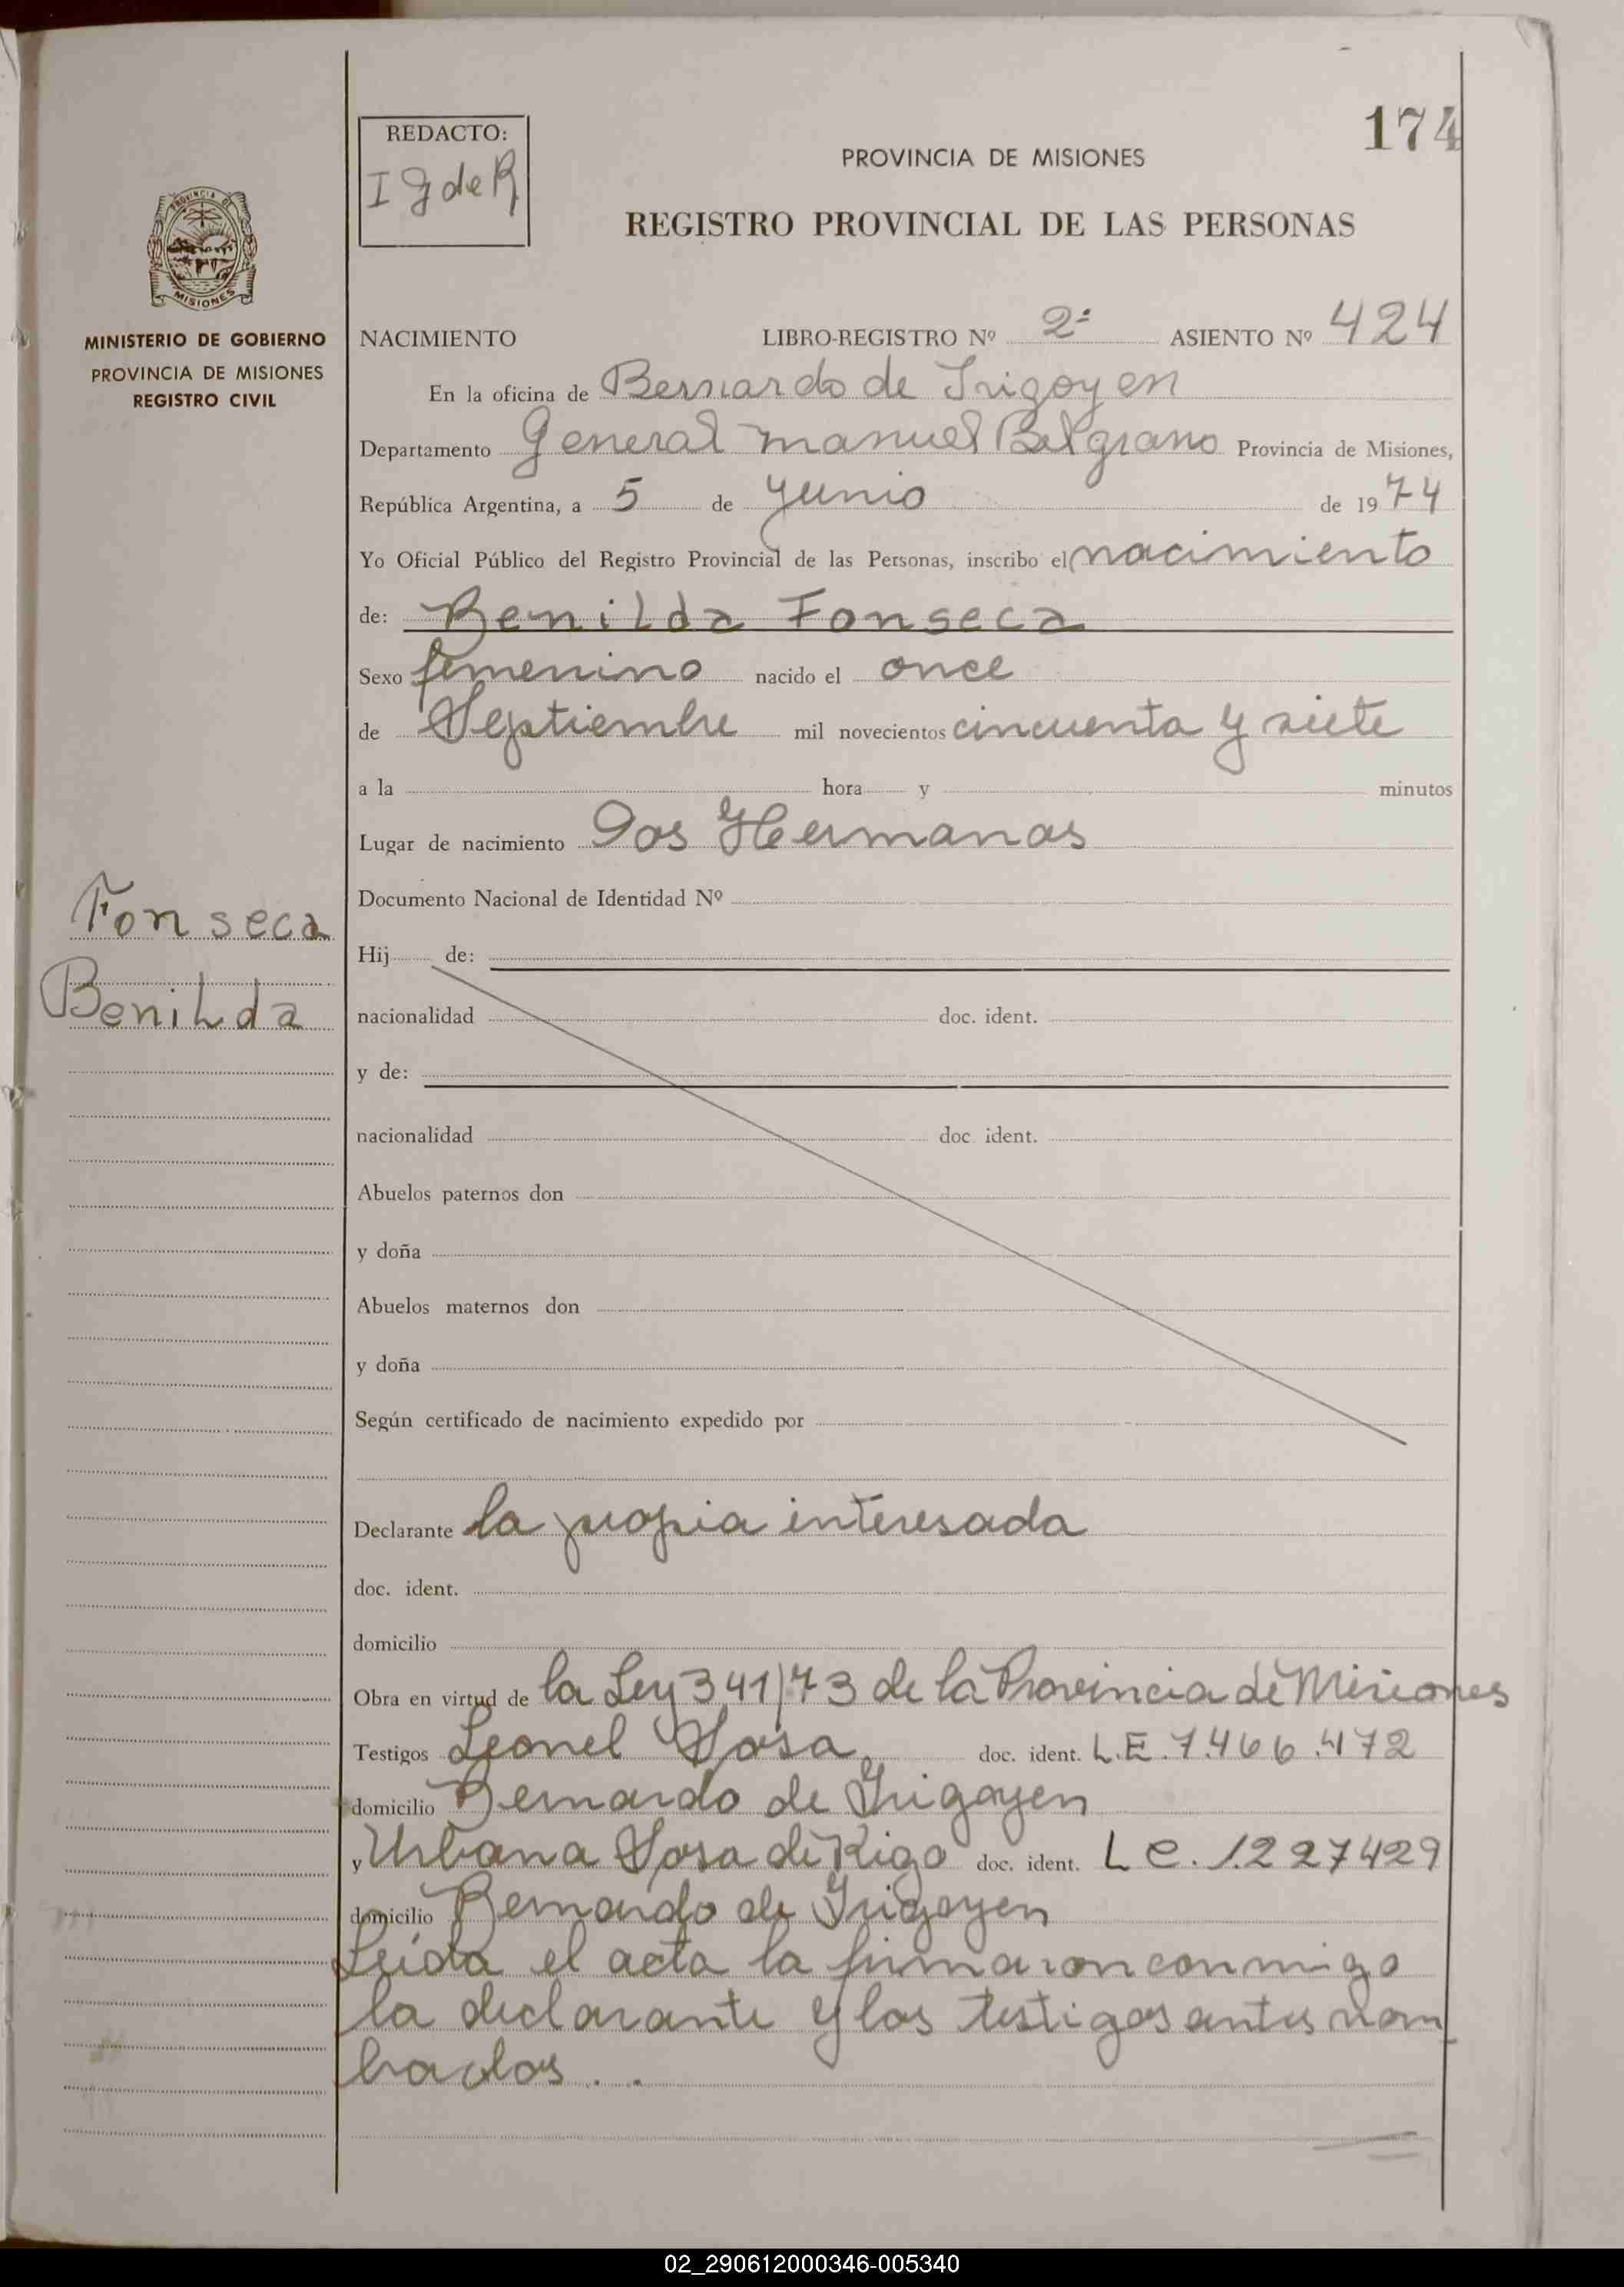 174
REDACTO:
I G de R
PROVINCIA DE MISIONES
REGISTRO PROVINCIAL DE LAS PERSONAS
PROVINCIA DE
MISIONES
MINISTERIO DE GOBIERNO
PROVINCIA DE MISIONES
REGISTRO CIVIL
NACIMIENTO LIBRO-REGISTRO Nº 2º ASIENTO Nº 424
En la oficina de Bernardo de Irigoyen
Departamento General Manuel Belgrano Provincia de Misiones,
República Argentina, a 5 de Junio de 1974
Yo Oficial Público del Registro Provincial de las Personas, inscribo el nacimiento
de: Benilda Fonseca
Sexo femenino nacido el once
de Septiembre mil novecientos cincuenta y siete
a la hora y minutos
Lugar de nacimiento Dos Hermanas
Documento Nacional de Identidad Nº
Fonseca
Benilda
Hij de:
nacionalidad doc. ident.
y de:
nacionalidad doc. ident.
Abuelos paternos don
y doña
Abuelos maternos don
y doña
Según certificado de nacimiento expedido por
Declarante la propia interesada
doc. ident.
domicilio
Obra en virtud de la Ley 341/73 de la Provincia de Misiones
Testigos Leonel Sosa, doc. ident. L.E. 7.466.472
domicilio Bernardo de Irigoyen
y Urbana Sosa de Rigo doc. ident. L C. 1.227429
domicilio Bernardo de Irigoyen
Leída el acta la firmaron conmigo
la declarante y los testigos antes nom
brados..
02_290612000346-005340